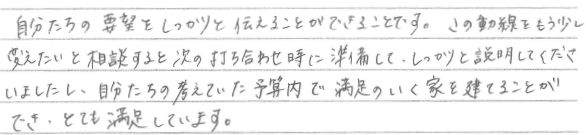 自分たちの要望をしっかりと伝えることができることです。この動線をもう少し
変えたいと相談すると次の打ち合わせ時に準備して、しっかりと説明してくださ
いましたし、自分たちの考えていた予算内で満足のいく家を建てることが
でき、とても満足しています。